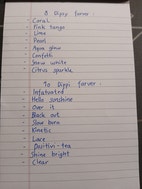 8 Dippy farver:
- Coral
- Pink tango
- Lime
- Pearl
- Aqua glow
- Confetti
- Snow white
- Citrus sparkle
10 Dippi farver:
- Infatuated
- Hello sunshine
- Over it
- Black out
- Slow burn
- Kinetic
- Lace
- Positivi-tea
- Shine bright
- Clear